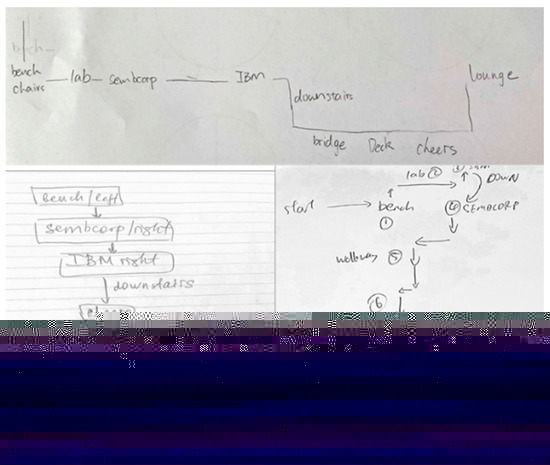 bench
chairs
lab
sembcorp
IBM
downstairs
bridge
Deck
cheers
lounge
bench/left
Sembcorp/right
IBM right
downstairs
start
bench
1
lab 2
DOWN
4 SEMBCORP
5
6